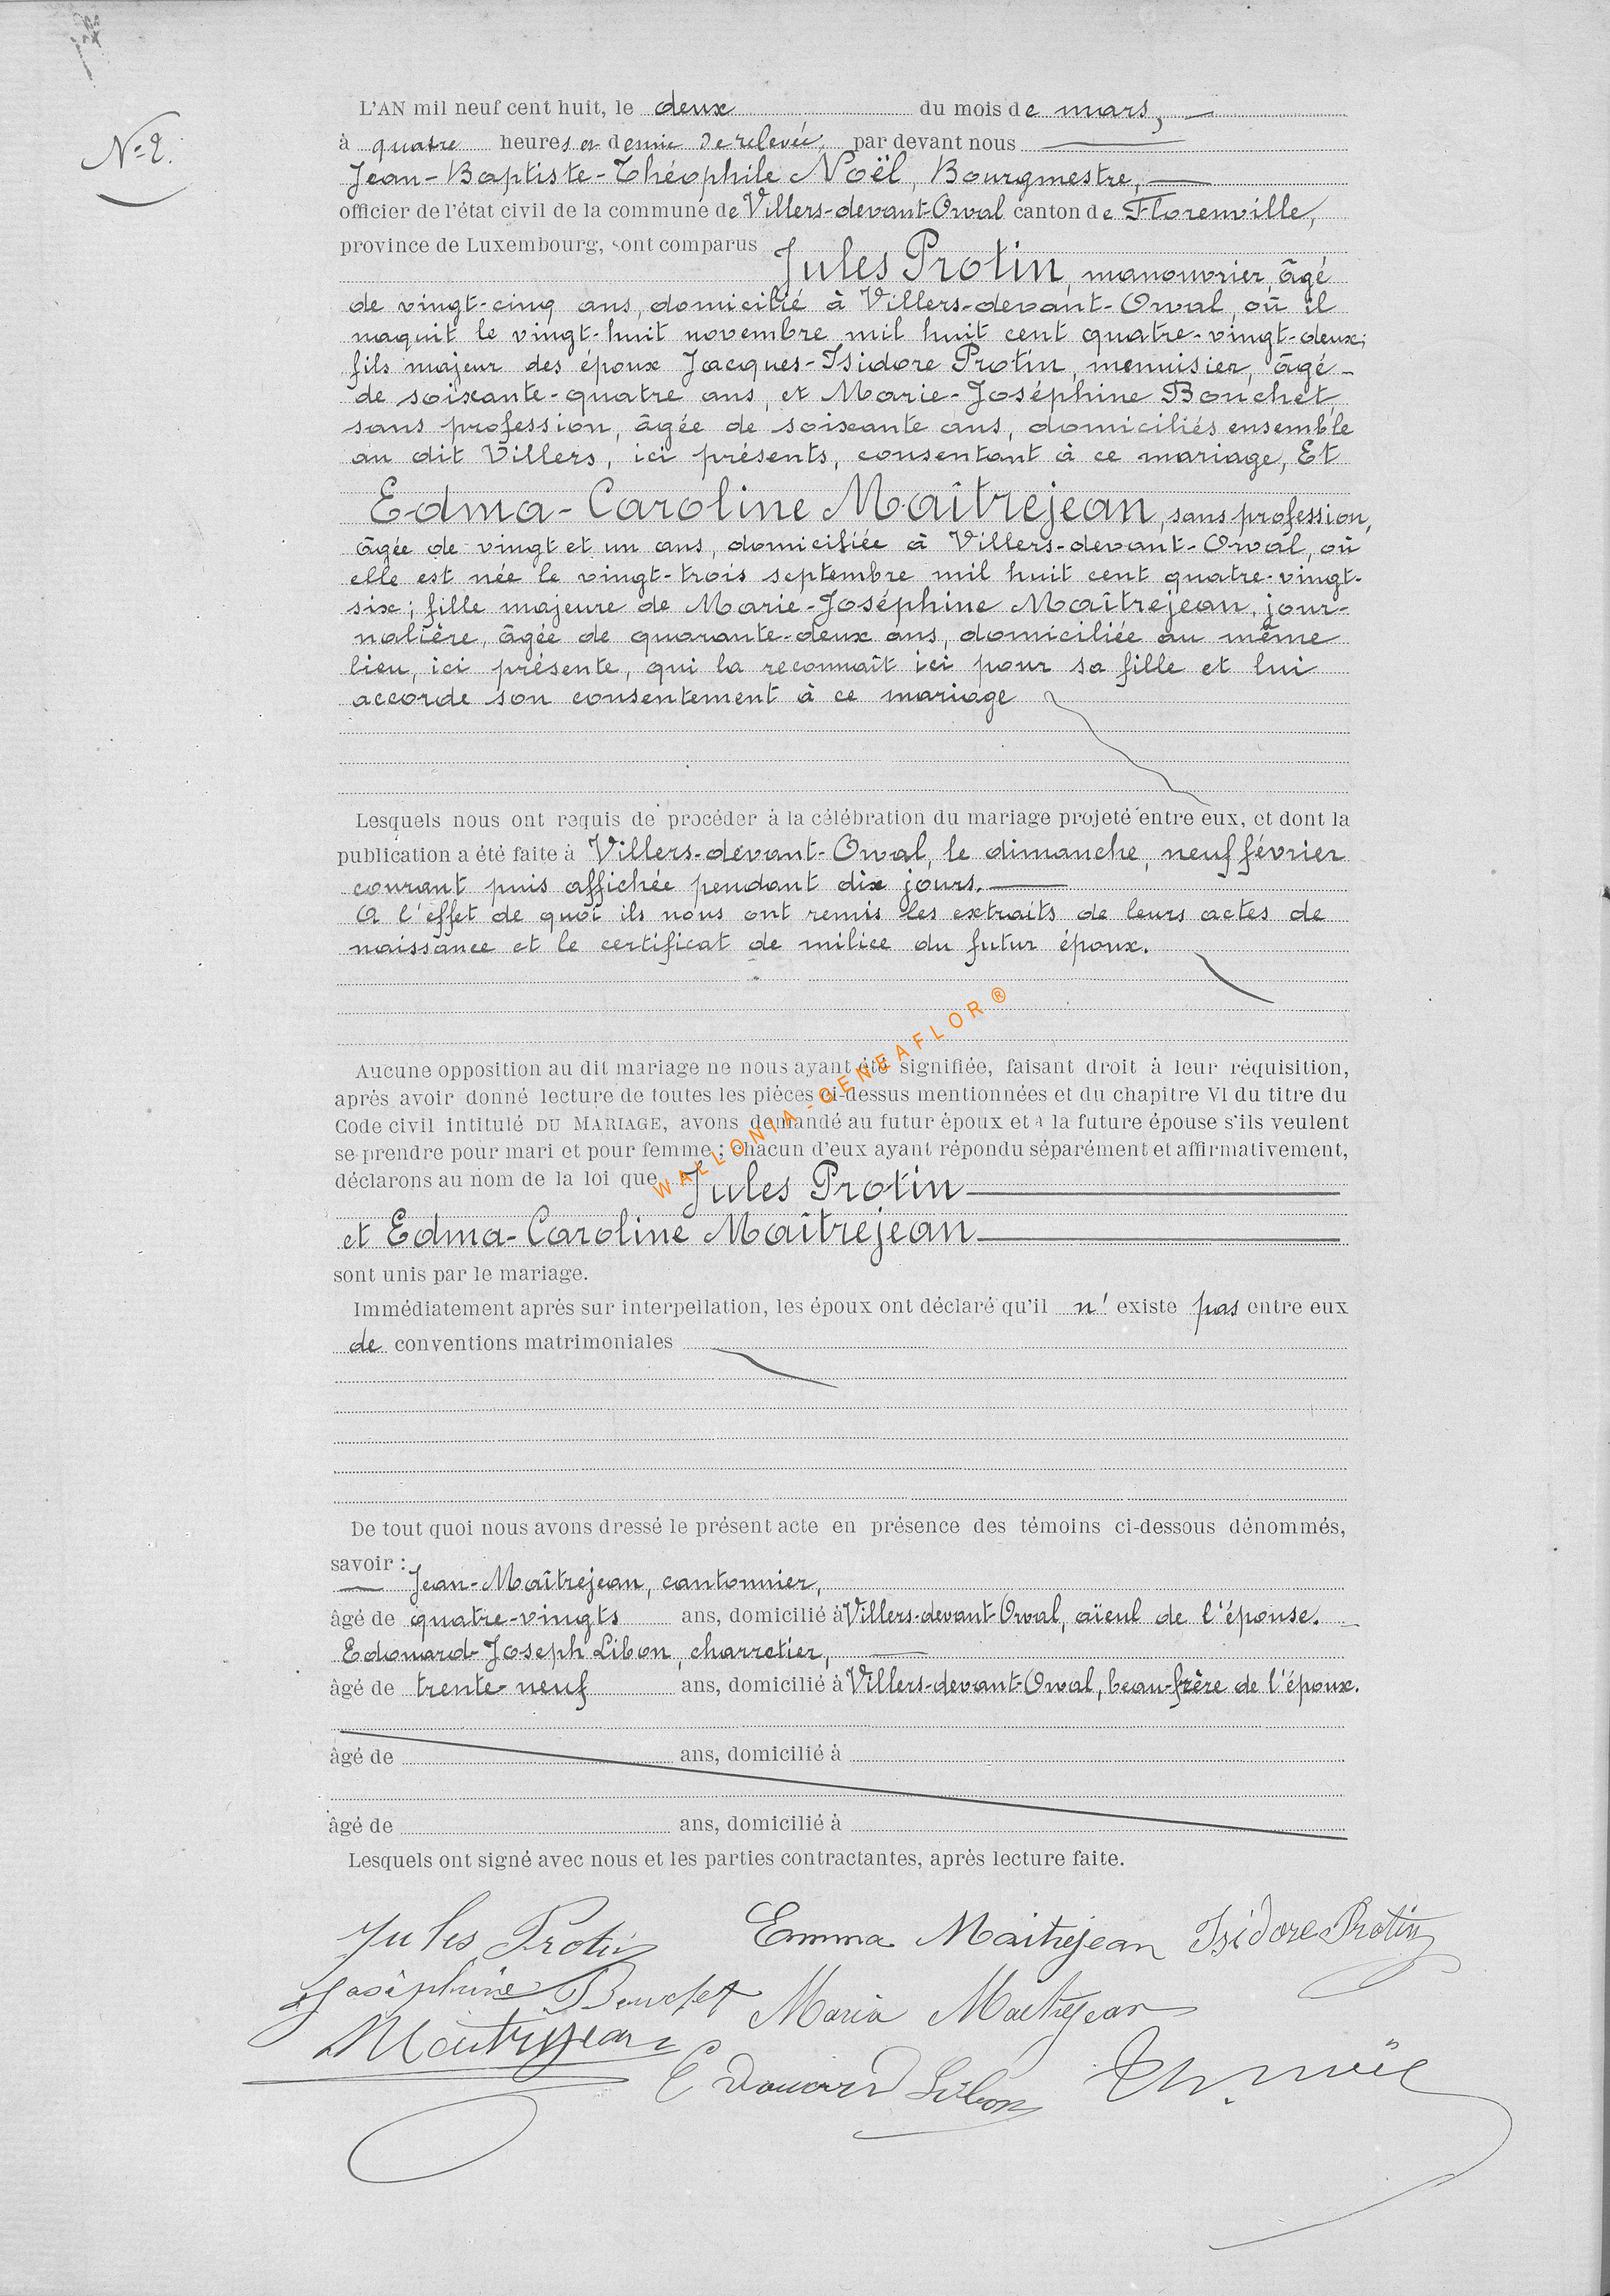 N° 2.
L'AN mil neuf cent huit, le deux du mois de mars,
à quatre heures et demie de relevée, par devant nous
Jean-Baptiste-Théophile Noël, Bourgmestre,
officier de l'état civil de la commune de Villers-devant-Orval canton de Florenville,
province de Luxembourg, sont comparus
Jules Protin, manouvrier, âgé
de vingt-cinq ans, domicilié à Villers-devant-Orval, où il
naquit le vingt-huit novembre mil huit cent quatre-vingt-deux;
fils majeur des époux Jacques-Isidore Protin, menuisier, âgé
de soixante-quatre ans, et Marie-Joséphine Bouchet,
sans profession, âgée de soixante ans, domiciliés ensemble
au dit Villers, ici présents, consentant à ce mariage, Et
Edma-Caroline Maîtrejean, sans profession,
âgée de vingt et un ans, domiciliée à Villers-devant-Orval, où
elle est née le vingt-trois septembre mil huit cent quatre-vingt-
six; fille majeure de Marie-Joséphine Maîtrejean, jour-
nalière, âgée de quarante-deux ans, domiciliée au même
lieu, ici présente, qui la reconnaît ici pour sa fille et lui
accorde son consentement à ce mariage
Lesquels nous ont requis de procéder à la célébration du mariage projeté entre eux, et dont la
publication a été faite à Villers-devant-Orval, le dimanche, neuf février
courant puis affichée pendant dix jours.
A l'effet de quoi ils nous ont remis les extraits de leurs actes de
naissance et le certificat de milice du futur époux.
Aucune opposition au dit mariage ne nous ayant été signifiée, faisant droit à leur réquisition,
après avoir donné lecture de toutes les pièces ci-dessus mentionnées et du chapitre VI du titre du
Code civil intitulé DU MARIAGE, avons demandé au futur époux et à la future épouse s'ils veulent
se prendre pour mari et pour femme; chacun d'eux ayant répondu séparément et affirmativement,
déclarons au nom de la loi que Jules Protin
et Edma-Caroline Maîtrejean
sont unis par le mariage.
Immédiatement après sur interpellation, les époux ont déclaré qu'il n'existe pas entre eux
de conventions matrimoniales
De tout quoi nous avons dressé le présent acte en présence des témoins ci-dessous dénommés,
savoir :
Jean-Maîtrejean, cantonnier,
âgé de quatre-vingts ans, domicilié à Villers-devant-Orval, aïeul de l'épouse.
Edouard-Joseph Libon, charretier,
âgé de trente-neuf ans, domicilié à Villers-devant-Orval, beau-frère de l'époux.
âgé de ans, domicilié à
âgé de ans, domicilié à
Lesquels ont signé avec nous et les parties contractantes, après lecture faite.
Jules Protin Emma Maitrejean Isidore Protin
Joséphine Bouchet Maria Maitrejean
Maitrejean Edouard Libon Th. Noël
WALLONIA-GENEAFLOR®